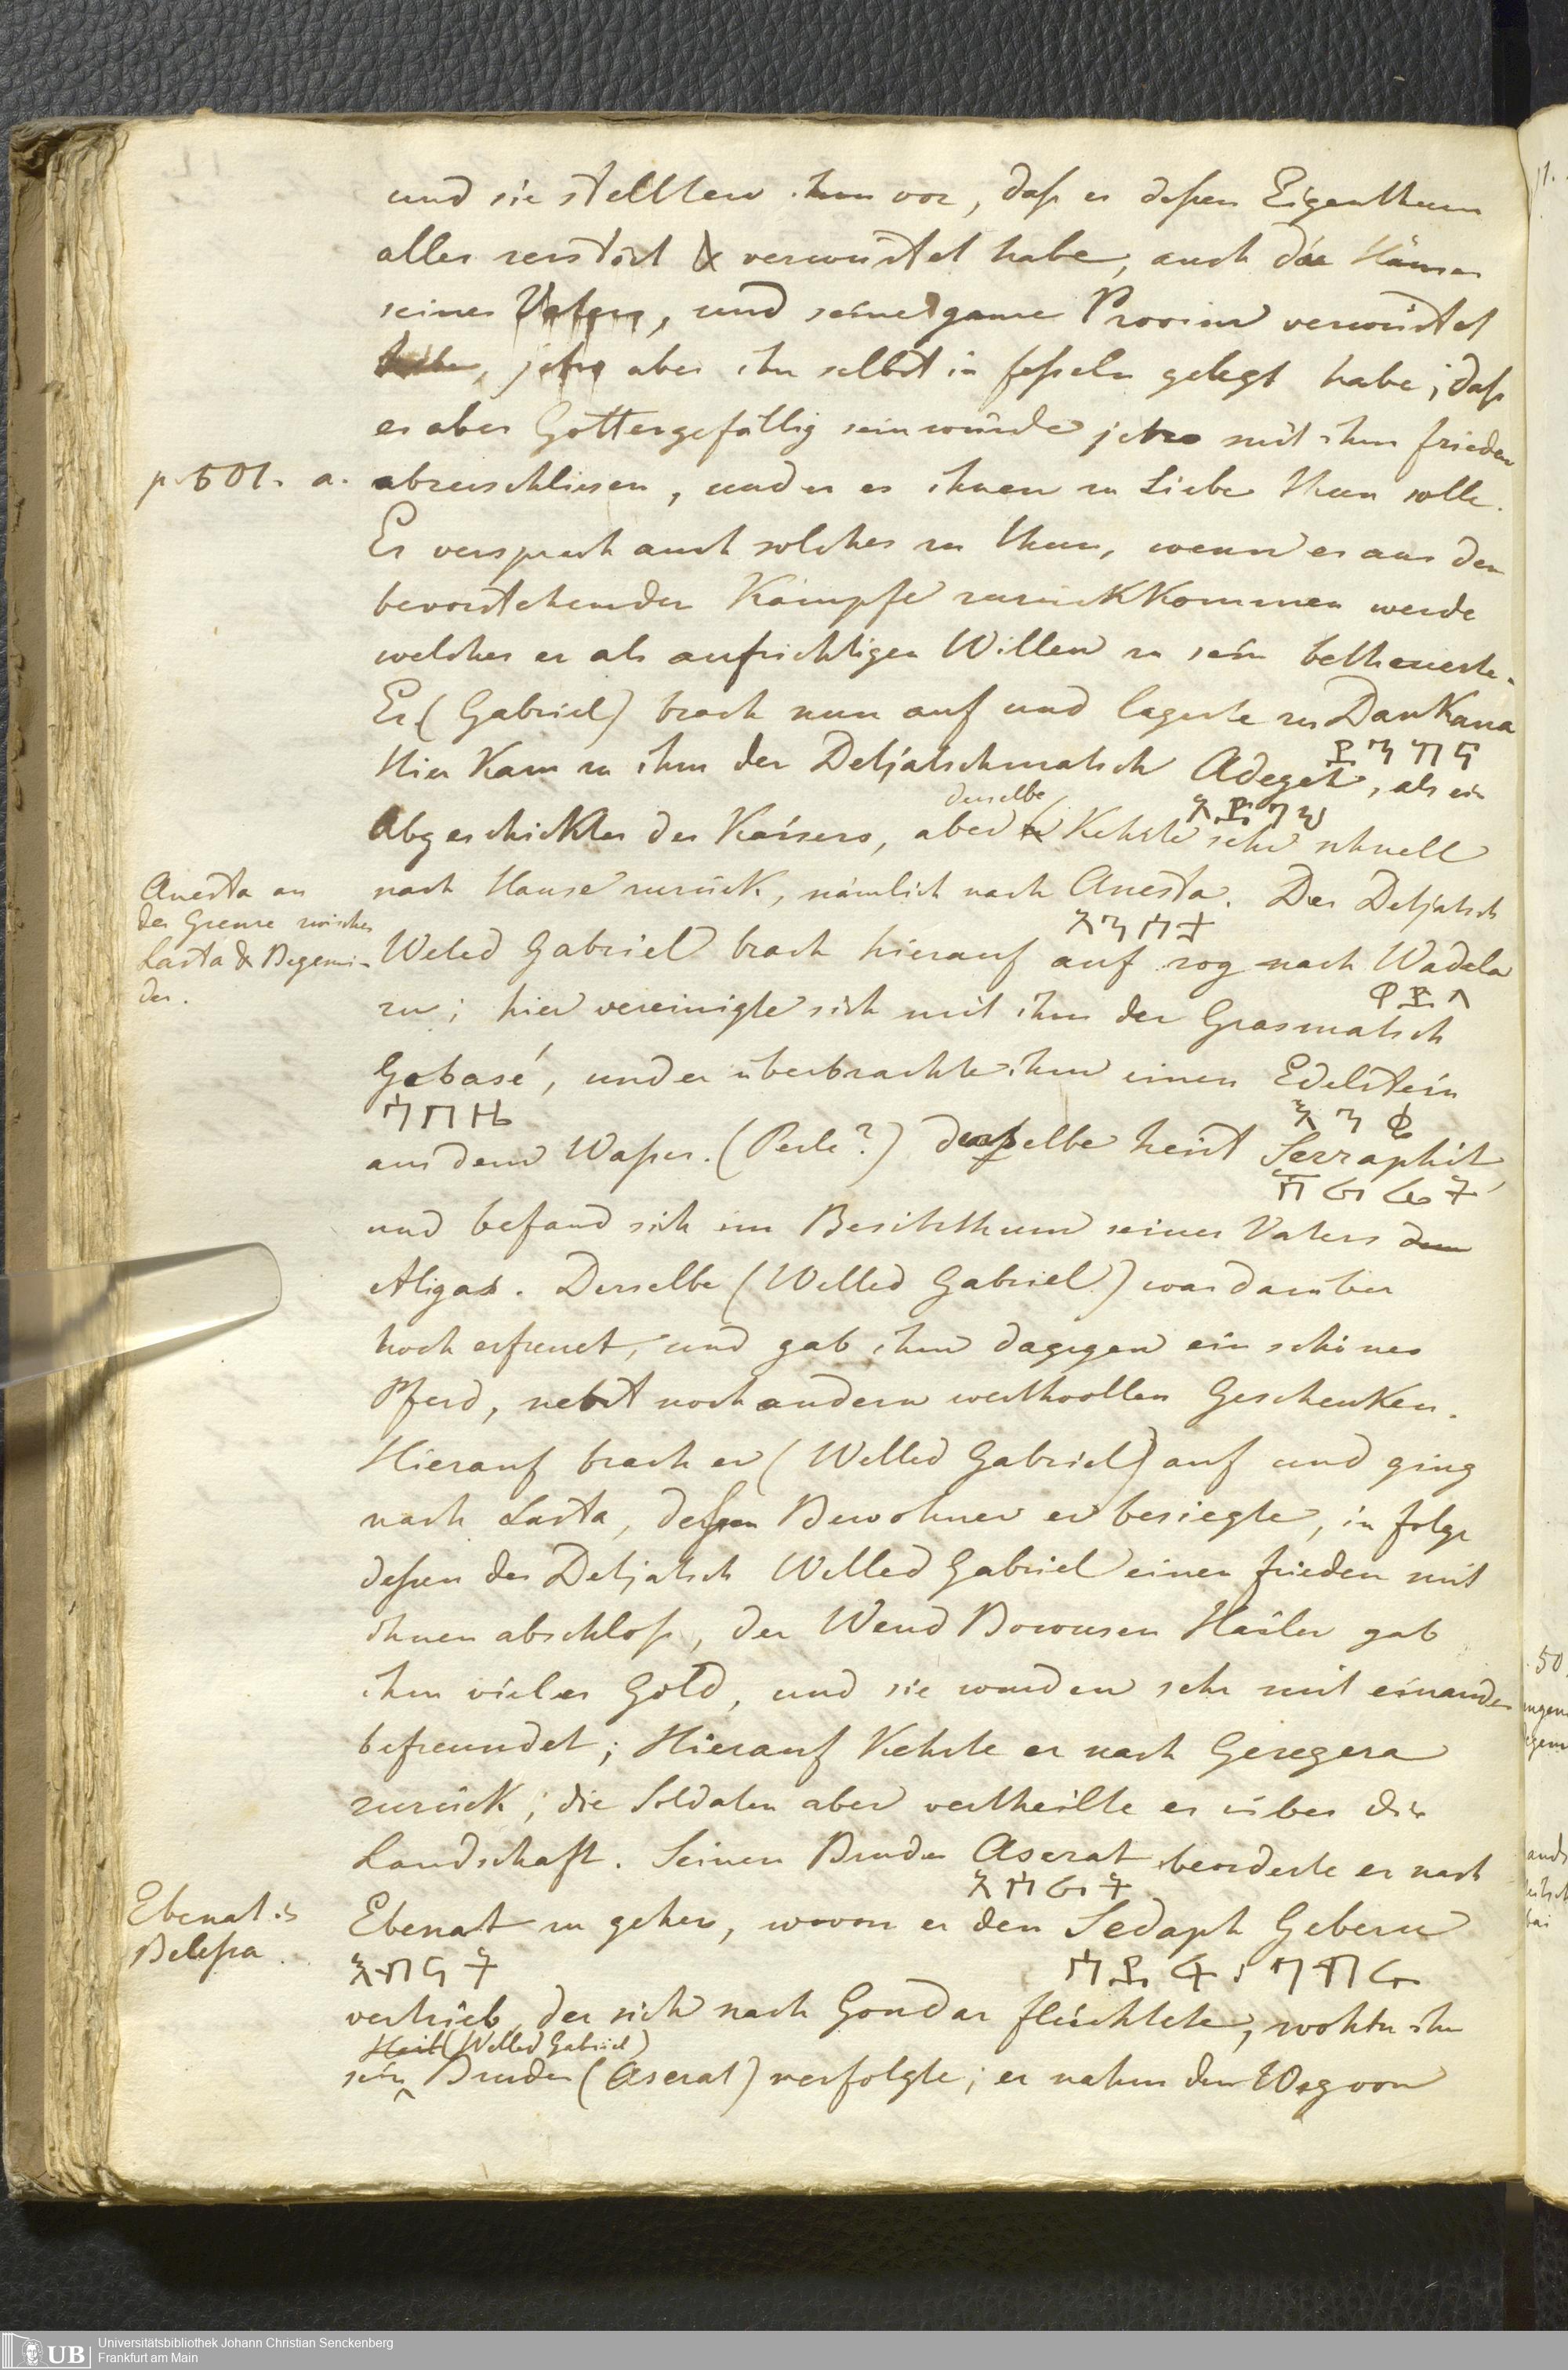 und sie stellten ihm vor, daß er deßen Eigenthum
alles zerstört & verwüstet habe, auch die Häuser
seines Vaters, und seine ganze Provinz verwüstet
habe, jetzo aber ihn selbst in feßeln gelegt habe; daß
es aber Gottergefällig sein würde jetzo mit ihm frieden
p. 501. a. abzuschliesen, und er es ihnen zu Liebe thun solle.
Er versprach auch solches zu thun, wenn er aus dem
bevorstehenden Kämpfe zurückkommen werde
welches er als aufrichtigen Willen zu sein betheuerte.
Er (Gabriel) brach nun auf und lagerte zu Dankana
ደንካና
Hier kam zu ihm der Detjatschmatsch Adeget, als ein
derselbe
Abgeschickter des Kaisers, aber er kehrte sehr schnell
Anesta an
der Grenze zwischen
Lasta & Begemi-
der.
nach Hause zurück, nämlich nach Anesta. Der Detjatsch
አንስታ
Weled Gabriel brach hierauf auf zog nach Wadela
ዋድላ
zu; hier vereinigte sich mit ihm der Grasmatsch
Gobasé, und er überbrachte ihm einen Edelstein
ጎበዜ
aus dem Waßer. (Perle?) derselbe heist Serraphit,
und befand sich im Besitzthum seines Vaters dem
Aligas. Derselbe (Welled Gabriel) war darüber
hoch erfreuet, und gab ihm dagegen ein schönes
Pferd, nebst noch andern werthvollen Geschenken.
Hierauf brach er (Welled Gabriel) auf und ging
nach Lasta, deßen Bewohner er besiegte, in folge
deßen der Detjatsch Welled Gabriel einen frieden mit
ihnen abschloß, der Wend Bowusen Häiler gab
ihm vieles Gold, und sie wurden sehr mit einander
befreundet; Hierauf kehrte er nach Geregera
zurück; die Soldaten aber vertheilte er über die
Landschaft. Seinen Bruder Aserat beorderte er nach
አሥራት
Ebenat in
Beleßa.
Ebenat zu gehen, wovon er den Sedaph Geberu
እብናት
vertrieb, der sich nach Gondar flüchtete, wohin ihn
(Welled Gabriel)
sein Bruder (Aserat) verfolgte; er nahm den Weg von
Universitätsbibliothek Johann Christian Senckenberg
Frankfurt am Main
UB